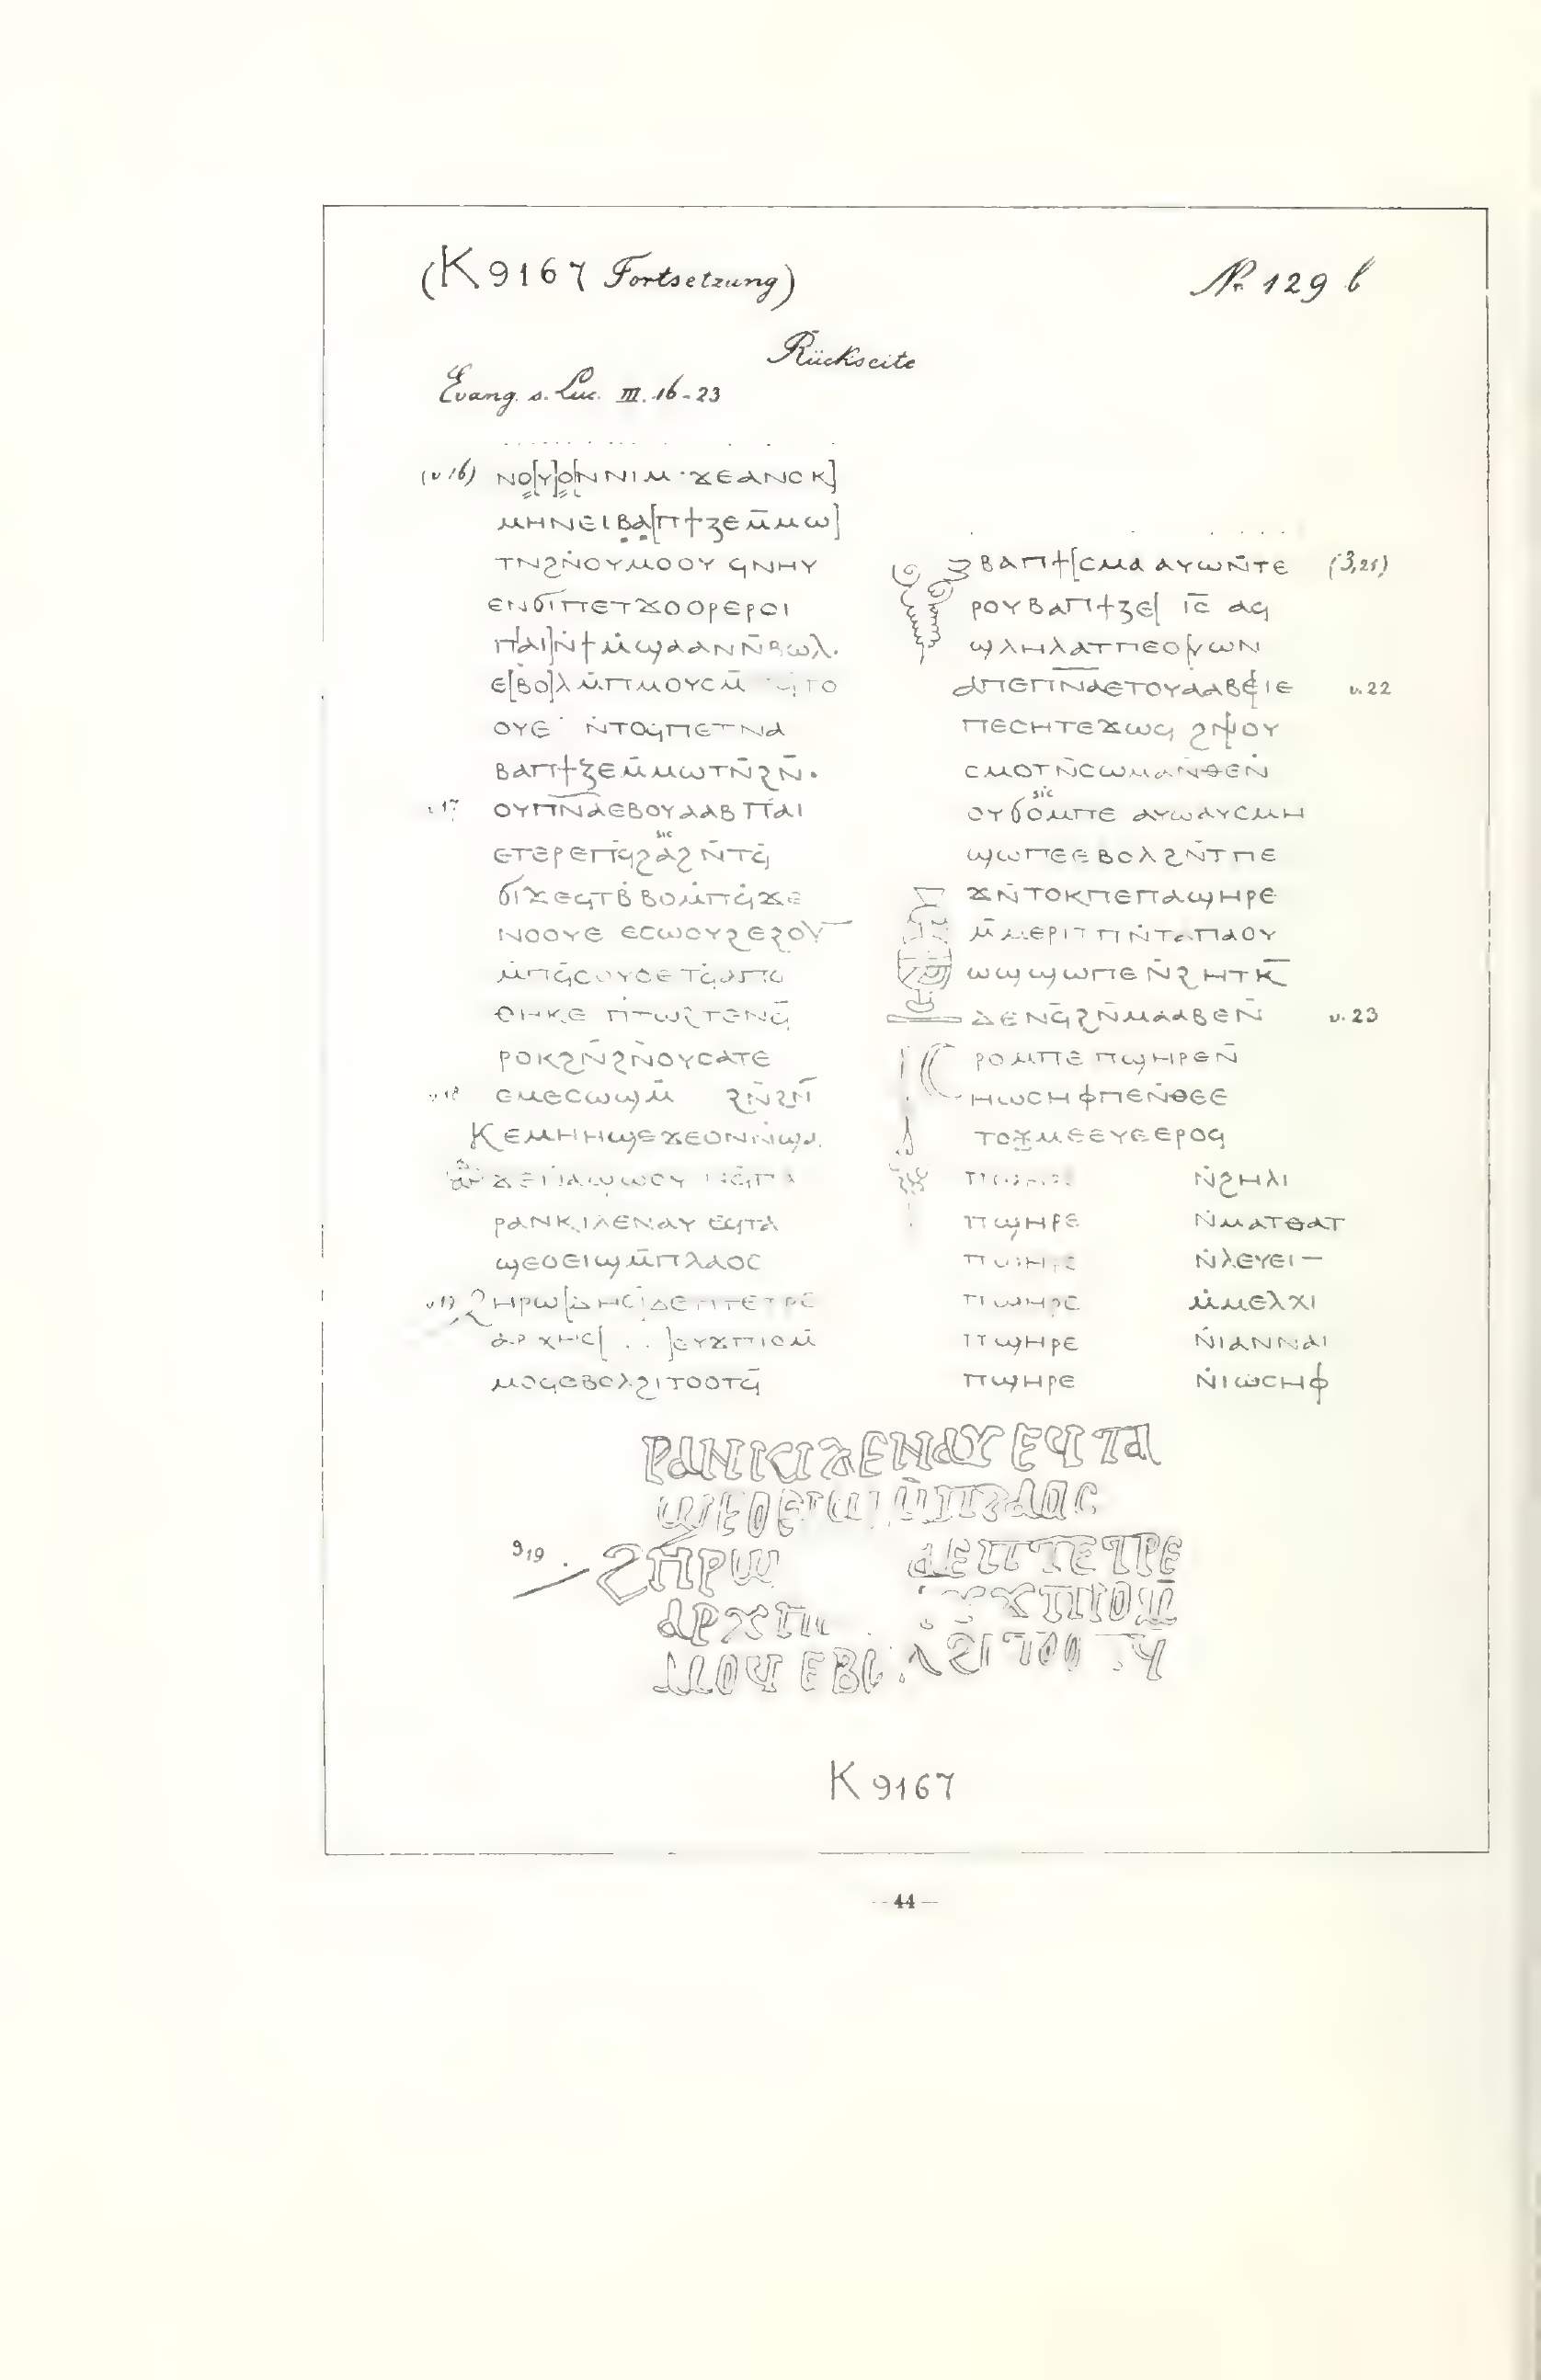 (K 9167 Fortsetzung)
№ 129 b
Rückseite
Evang. s. Luc. III. 16-23
(v 16) ⲛⲟ[ⲩ]ⲟ[ⲛⲛⲓⲙ·ϫⲉⲁⲛⲟⲕ]
ⲙⲏⲛⲉⲓⲃⲁ[ⲡϯⲍⲉⲙ̄ⲙⲱ]
ⲧⲛϩⲛ̇ⲟⲩⲙⲟⲟⲩ ϥⲛⲏⲩ
ⲉⲛϭⲓⲡⲉⲧϫⲟⲟⲣⲉⲣⲟⲓ
ⲡ[ⲁⲓ]ⲛ̇ϯⲙ̇ϣⲁⲁⲛⲛ̄ⲃⲱⲗ·
ⲉ[ⲃⲟ]ⲗⲙ̇ⲡⲙⲟⲩⲥⲙ̄
ⲟⲩⲉ ⲛ̇ⲧⲟϥⲡⲉⲧⲛⲁ
ⲃⲁⲡϯⲍⲉⲙ̄ⲙⲱⲧⲛ̄ϩⲛ̄·
v 17 ⲟⲩⲡⲛ̄ⲁⲉⲃⲟⲩⲁⲁⲃ ⲡⲁⲓ
sic
ⲉⲧⲉⲣⲉⲡϥ̄ϩⲁϩ ⲛ̄ⲧϥ̄
ϭⲓϫⲉϥⲧⲃ̇ⲃⲟⲙ̇ⲡϥ̇ϫⲉ
ⲛⲟⲟⲩⲉ ⲉⲥⲱⲟⲩϩⲉϩⲟⲩ̄
ⲙ̇ⲡϥ̄ⲥⲟⲩⲟⲉⲧϥ̇ⲁⲡⲟ
ⲑⲏⲕⲉ ⲡⲧⲱϩⲧⲉⲛϥ̄
ⲣⲟⲕϩⲛ̄ϩⲛ̇ⲟⲩⲥⲁⲧⲉ
v 18 ⲉⲙⲉⲥⲱϣⲙ̄ ϩⲛ̄ϩⲛ̄
ⲕⲉⲙⲏⲏϣⲉϫⲉⲟⲛ
ⲣⲁⲛⲕⲓⲗⲉⲛⲁⲩ ⲉϥⲧⲁ
ϣⲉⲟⲉⲓϣⲙ̄ⲡⲗⲁⲟⲥ
v 19 ϩⲏⲣⲱ[ⲇⲏⲥ]ⲇⲉⲡⲧⲉⲧⲣⲉ
ⲁⲣⲭⲏⲥ[ . . ]ⲉⲩϫⲡⲓⲟⲙ̄
ⲙⲟϥⲉⲃⲟⲗϩⲓⲧⲟⲟⲧϥ̄
ⲃⲁⲡϯ[ⲥⲙⲁ ⲁⲩⲱⲛ̄ⲧⲉ (3,21)
ⲣⲟⲩⲃⲁⲡϯⲍⲉ[ ⲓ̄ⲥ̄ ⲁϥ
ϣⲗⲏⲗⲁⲧⲡⲉⲟⲩⲱⲛ
ⲁⲡⲉⲡⲛ̄ⲁ̄ⲉⲧⲟⲩⲁⲁⲃⲉⲓⲉ v. 22
ⲡⲉⲥⲏⲧⲉϫⲱϥ ϩⲛ̇ⲟⲩ
ⲥⲙⲟⲧⲛ̄ⲥⲱⲙⲁⲛ̄ⲑⲉⲛ̇
sic
ⲟⲩϭⲟⲙⲡⲉ ⲁⲩⲱⲁⲩⲥⲙⲏ
ϣⲱⲡⲉⲉⲃⲟⲗϩⲛ̄ⲧⲡⲉ
ϫⲛ̇ⲧⲟⲕⲡⲉⲡⲁϣⲏⲣⲉ
ⲙ̄ⲙⲉⲣⲓⲧ ⲡⲛ̇ⲧⲁⲡⲁⲟⲩ
ⲱϣϣⲱⲡⲉⲛ̄ϩⲏⲧⲕ̄
ⲇⲉⲛϥ̄ϩⲛ̄ⲙⲁⲁⲃⲉⲛ̄ v. 23
ⲣⲟⲙⲡⲉ ⲡϣⲏⲣⲉⲛ̄
ⲓⲱⲥⲏⲫⲡⲉⲛ̇ⲑⲉⲉ
ⲧⲟⲩⲙⲉⲉⲩⲉⲉⲣⲟϥ
ⲡϣⲏⲣⲉ ⲛ̇ϩⲏⲗⲓ
ⲡϣⲏⲣⲉ ⲛ̇ⲙⲁⲧⲑⲁⲧ
ⲡϣⲏⲣⲉ ⲛ̇ⲗⲉⲩⲉⲓ—
ⲡϣⲏⲣⲉ ⲙ̇ⲙⲉⲗⲭⲓ
ⲡϣⲏⲣⲉ ⲛ̇ⲓⲁⲛⲛⲁⲓ
ⲡϣⲏⲣⲉ ⲛ̇ⲓⲱⲥⲏⲫ
ⲣⲁⲛⲕⲓⲗⲉⲛⲁⲩ ⲉϥⲧⲁ
ϣⲉⲟⲉⲓϣⲙ̇ⲡⲗⲁⲟⲥ
919 ϩⲏⲣⲱ ⲇⲉⲡⲧⲉⲧⲣⲉ
ⲁⲣⲭⲏ ϫⲡⲓⲟⲙ̄
ⲙⲟϥ ⲉⲃⲟⲗϩⲓⲧⲟⲟⲧϥ̄
K 9167
— 44 —